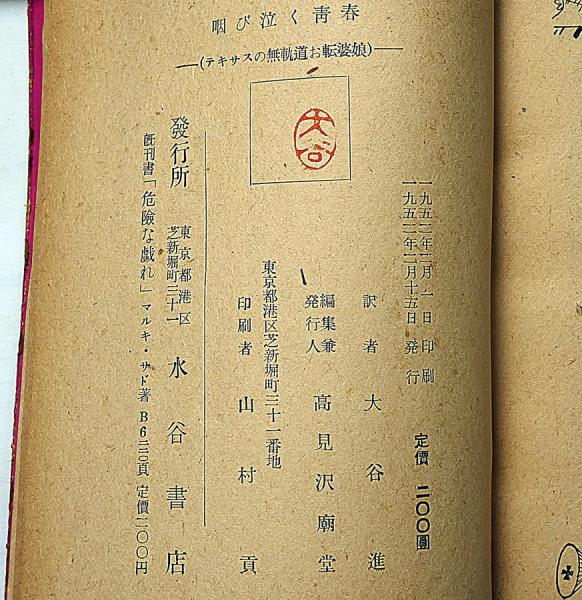 咽び泣く靑春
(テキサスの無軌道お転婆娘)
大谷
一九五二年二月一日 印刷
一九五二年二月十五日 発行
定價 二〇〇圓
訳者 大谷進
編集兼
発行人 高見沢廟堂
東京都港区芝新堀町三十一番地
印刷者 山村貢
發行所 東京都港区
芝新堀町三十一 水谷書店
旣刊書「危險な戯れ」マルキ・サド著 B6二二〇頁 定價二〇〇円